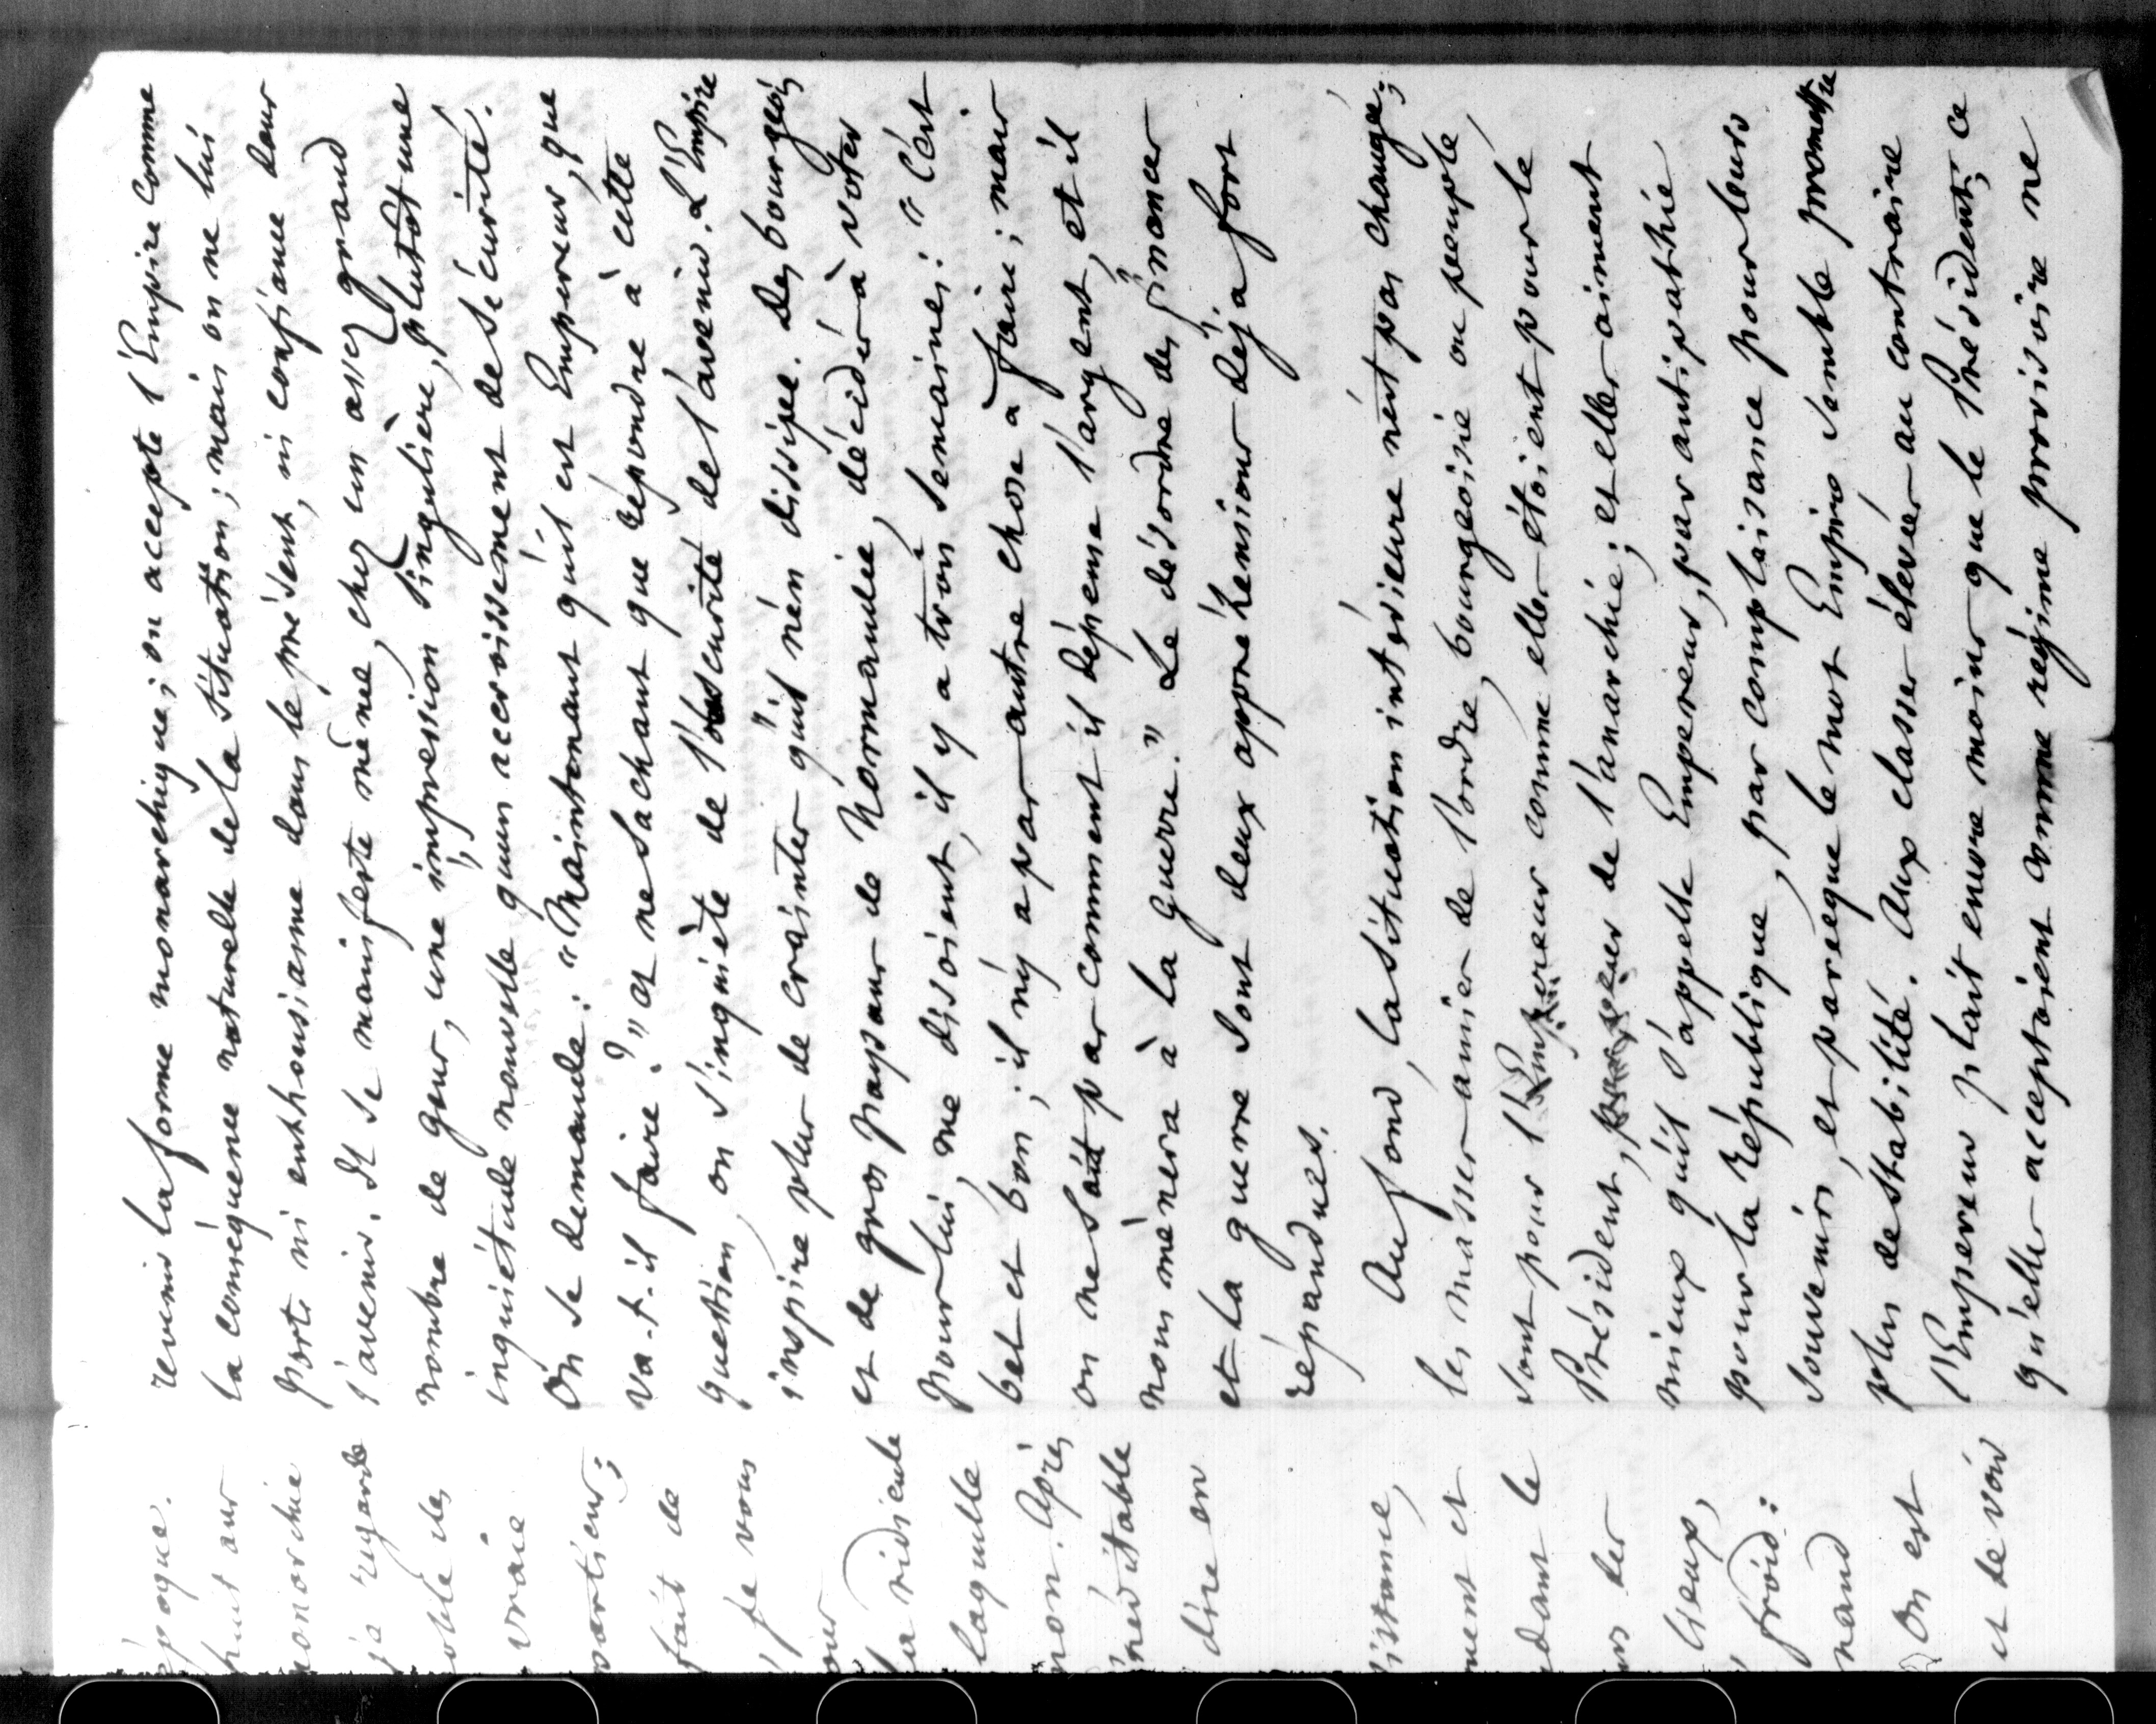 époque.
monarchie
je regarde
vraie
fait de
je vous
la ridicule
laquelle
non. Après
dire en
dant le
lieux,
froid :
On est
et de voir
revenir la forme monarchique ; on accepte l'Empire comme
la conséquence naturelle de la situation ; mais on ne lui
porte ni enthousiasme dans le présent, ni confiance dans
l'avenir. Il se manifeste même, chez un assez grand
nombre de gens, une impression singulière, plutôt une
inquiétude nouvelle qu'un accroissement de sécurité.
On se demande : " Maintenant qu'il est Empereur, que
va-t-il faire ? " et ne sachant que répondre à cette
question, on s'inquiète de l'obscurité de l'avenir. L'Empire
inspire plus de craintes qu'il n'en dissipe. Des bourgeois
et de gros paysans de Normandie, décidés à voter
pour lui, me disoient, il y a trois semaines : " C'est
bel et bon ; il n'y a pas autre chose à faire ; mais
on ne sait pas comment il dépense l'argent, et il
nous mènera à la guerre. " Le désordre des finances
et la guerre sont deux appréhensions déjà fort
répandues.
Au fond, la situation intérieure n'est pas changée ;
les masses amies de l'ordre, bourgeoisie ou peuple,
sont pour l'Empereur comme elles étoient pour le
Président, par peur de l'anarchie ; et elles aiment
mieux qu'il s'appelle Empereur, par antipathie
pour la République, par complaisance pour leurs
souvenirs, et parce que le mot Empire semble promettre
plus de stabilité. Aux classes élevées au contraire
l'Empereur plait encore moins que le Président ; ce
qu'elles acceptoient comme régime provisoire ne